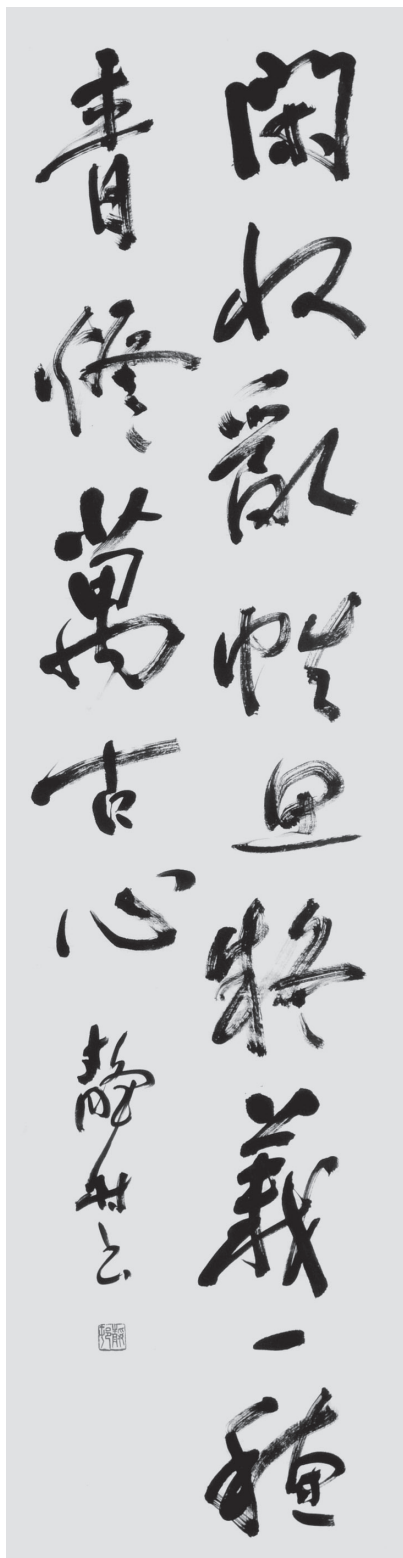 閑収亂帙思疑義一穂
青燈萬古心 静